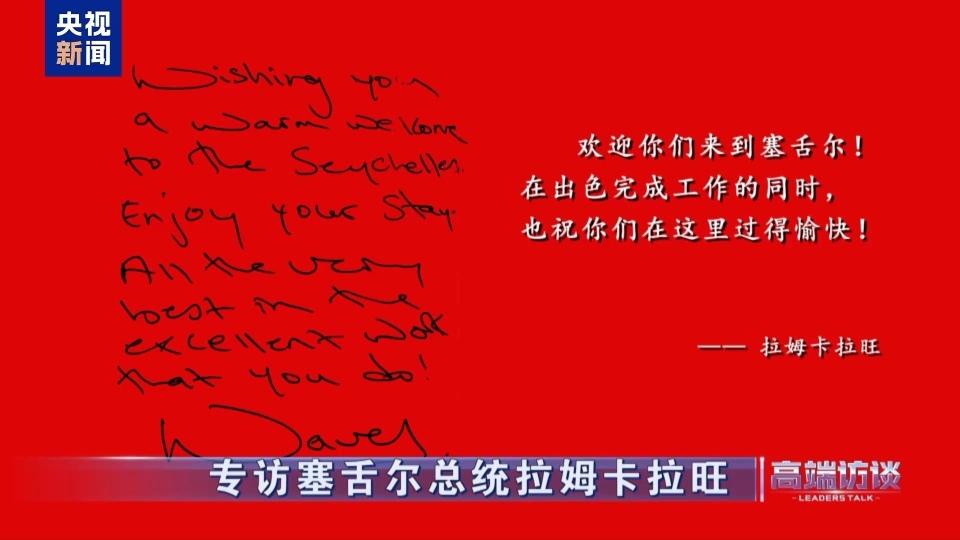 央视
新闻
Wishing you
a warm welcome
to the Seychelles.
Enjoy your stay.
All the very
best in the
excellent work
that you do!
欢迎你们来到塞舌尔！
在出色完成工作的同时，
也祝你们在这里过得愉快！
—— 拉姆卡拉旺
专访塞舌尔总统拉姆卡拉旺
高端访谈
-LEADERS TALK-